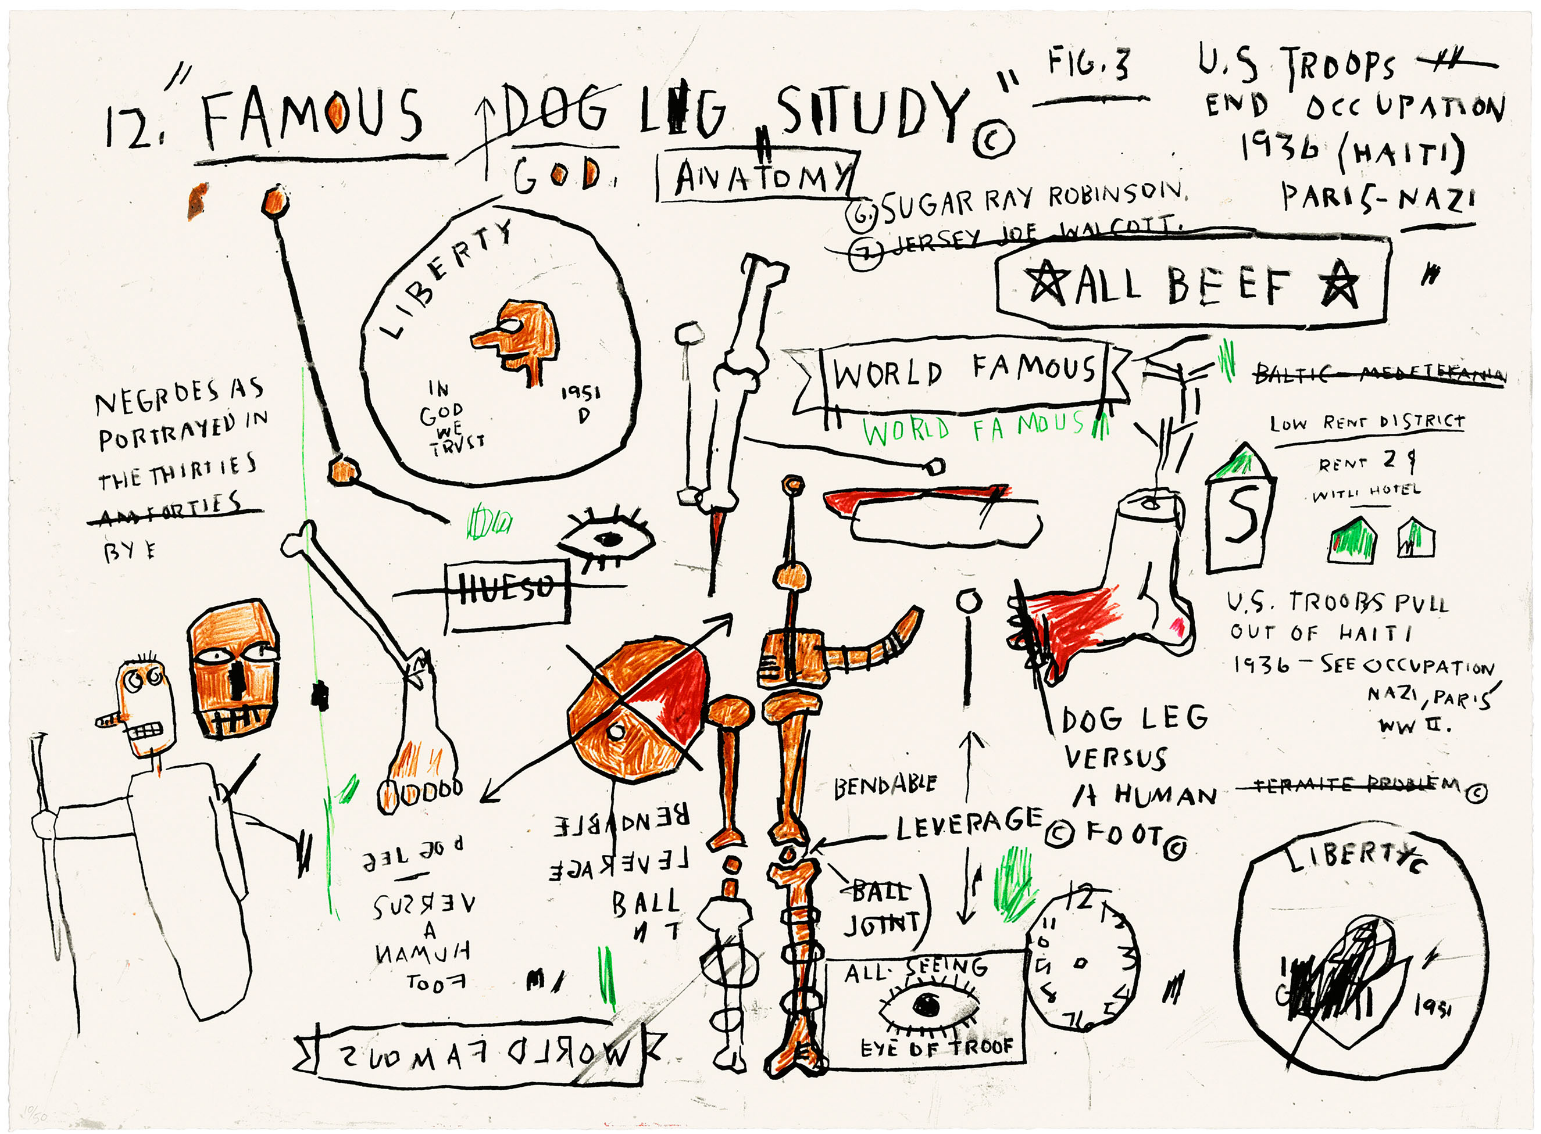 12. "FAMOUS DOG LEG STUDY" ©
GOD.
ANATOMY
FIG. 3
U.S TROOPS
END OCCUPATION
1936 (HAITI)
PARIS-NAZI
6. SUGAR RAY ROBINSON.
7. JERSEY JOE WALCOTT.
☆ALL BEEF☆
LIBERTY
IN
GOD
WE
TRUST
1951
D
WORLD FAMOUS
WORLD FAMOUS
BALTIC – MEDETERANIN
LOW RENT DISTRICT
RENT 2¢
WITH HOTEL
S
NEGROES AS
PORTRAYED IN
THE THIRTIES
AND FORTIES
BY E
HUESO
U.S. TROOPS PULL
OUT OF HAITI
1936 – SEE OCCUPATION
NAZI, PARIS
WW II.
DOG LEG
VERSUS
A HUMAN
FOOT©
TERMITE PROBLEM©
BENDABLE
LEVERAGE©
BALL
JOINT)
BENDABLE
LEVERAGE
BALL
N T
DOG LEG
VERSUS
A
HUMAN
FOOT
ALL SEEING
EYE OF TROOF
12
11
LIBERTY
1951
WORLD FAMOUS
19/50